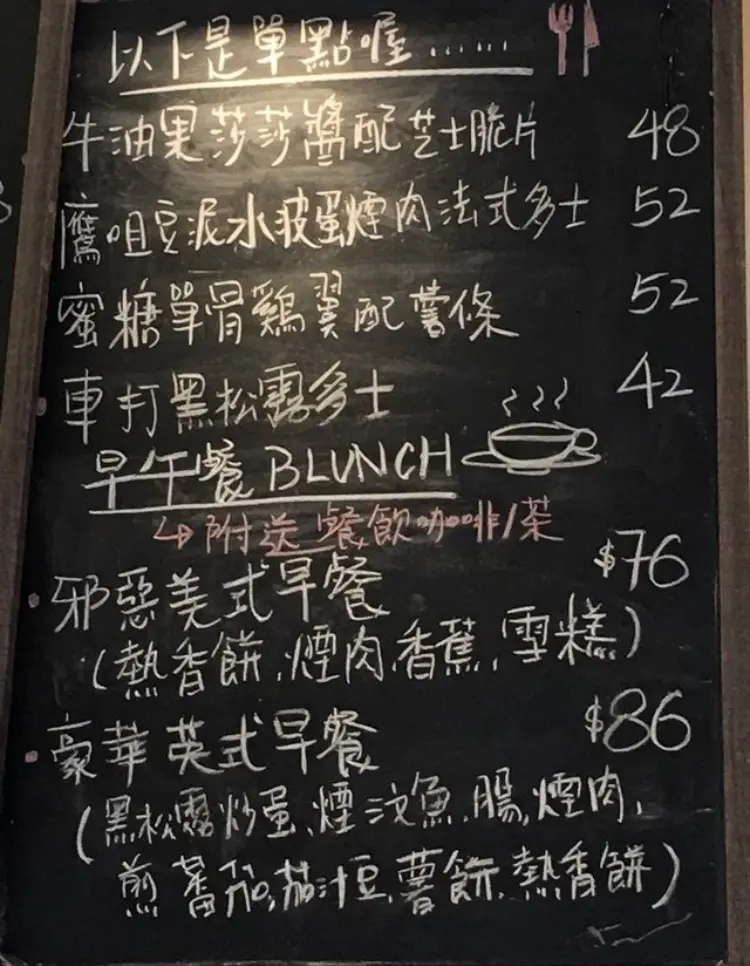 以下是單點喔......
牛油果莎莎醬配芝士脆片 48
鷹咀豆泥水波蛋煙肉法式多士 52
蜜糖單骨鷄翼配薯條 52
車打黑松露多士 42
早午餐 BLUNCH
↳附送餐飲咖啡/茶
·邪惡美式早餐 $76
(熱香餅,煙肉,香蕉,雪糕)
·豪華英式早餐 $86
(黑松露炒蛋,煙三文魚,腸,煙肉,
煎蕃茄,茄汁豆,薯餅,熱香餅)